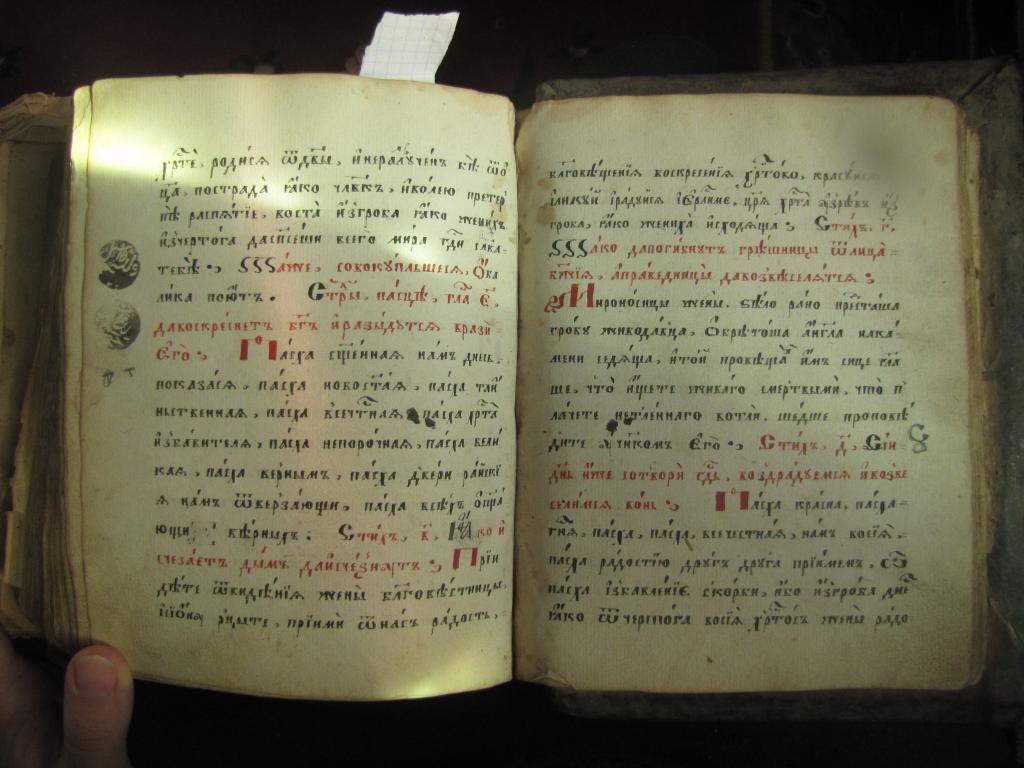 хрⷭ҇те, родисѧ ѿдв҃ы, и҆неразлꙋченъ бѣ ѿо҆
ц҃а, пострада ꙗ҆ко чл҃вкъ, и҆волею претер
пѣ распѧтїе, воста и҆згроба ꙗ҆ко женихъ
и҆зчертога дасп҃сеши всего мира гдⷭ҇и сла́ва
тебѣ :
лика поютъ . Стⷯры, пасцѣ, гла́ е҃,
давоскреснетъ бг҃ъ и҆разыдꙋтсѧ врази
Е҆го : Пасха сщ҃еннаѧ намъ днесь,
показасѧ, пасха новостаѧ, пасха таи҆
нственнаѧ, пасха всечⷭ҇тнаѧ пасха хрⷭ҇та
и҆збавителѧ, пасха непорочнаѧ, пасха вели
каѧ, пасха вернымъ, пасха двери раискї
ѧ намъ ѿверзающи, пасха всѣхъ ѡ҆сщ҃а
ющи вѣрныхъ : Стихъ, в҃, Ꙗ҆ко и҆
счезаетъ дымъ даи҆счезнꙋтъ : Прїи
дѣте ѿвидѣнїѧ жены бл҃говѣстницы,
сїѡ́нꙋ рцыте, прїими ѿнасъ радость,
бл҃говѣщенїѧ воскресенїѧ хрⷭ҇тово,
ликꙋи и҆радꙋисѧ і҆ерⷭ҇лиме, цр҃ѧ хрⷭ҇та ꙋзрѣвъ и҆з
гроба, ꙗ҆ко жениха и҆сходѧща : Стихъ, г҃,
Тако дапогибнꙋтъ грѣшницы ѿлица
бж҃їѧ, а҆праведницы давозвеселѧтсѧ :
Мироносицы жены, ѕѣло рано преⷣсташа
гробꙋ живодавца, Ѡ҆брѣтоша а҆нг҃ла нака
мени седѧща, и҆той провѣщавъ и҆мъ сице гл҃а
ше, что и҆щете живаго смертвыми, что п
лачете нетленнаго вотли, шедше проповѣ
дите ꙋ҆чн҃комъ Е҆го : Стихъ, д҃, Сеи
дн҃ь и҆же сотвори гдⷭ҇ь, воздрадꙋемсѧ и҆возве
селимсѧ вонь : Пасха красна, пасха
гнѧ, пасха, пасха, всечестнаѧ, намъ восїѧ,
пасха радостїю дрꙋгъ дрꙋга прїимемъ, Ѽ
пасха і҆збавленїе скорби, и҆бо и҆згроба днⷭ҇ь
ꙗ҆ко ѿчертога восїѧ хрⷭ҇тосъ жены радо